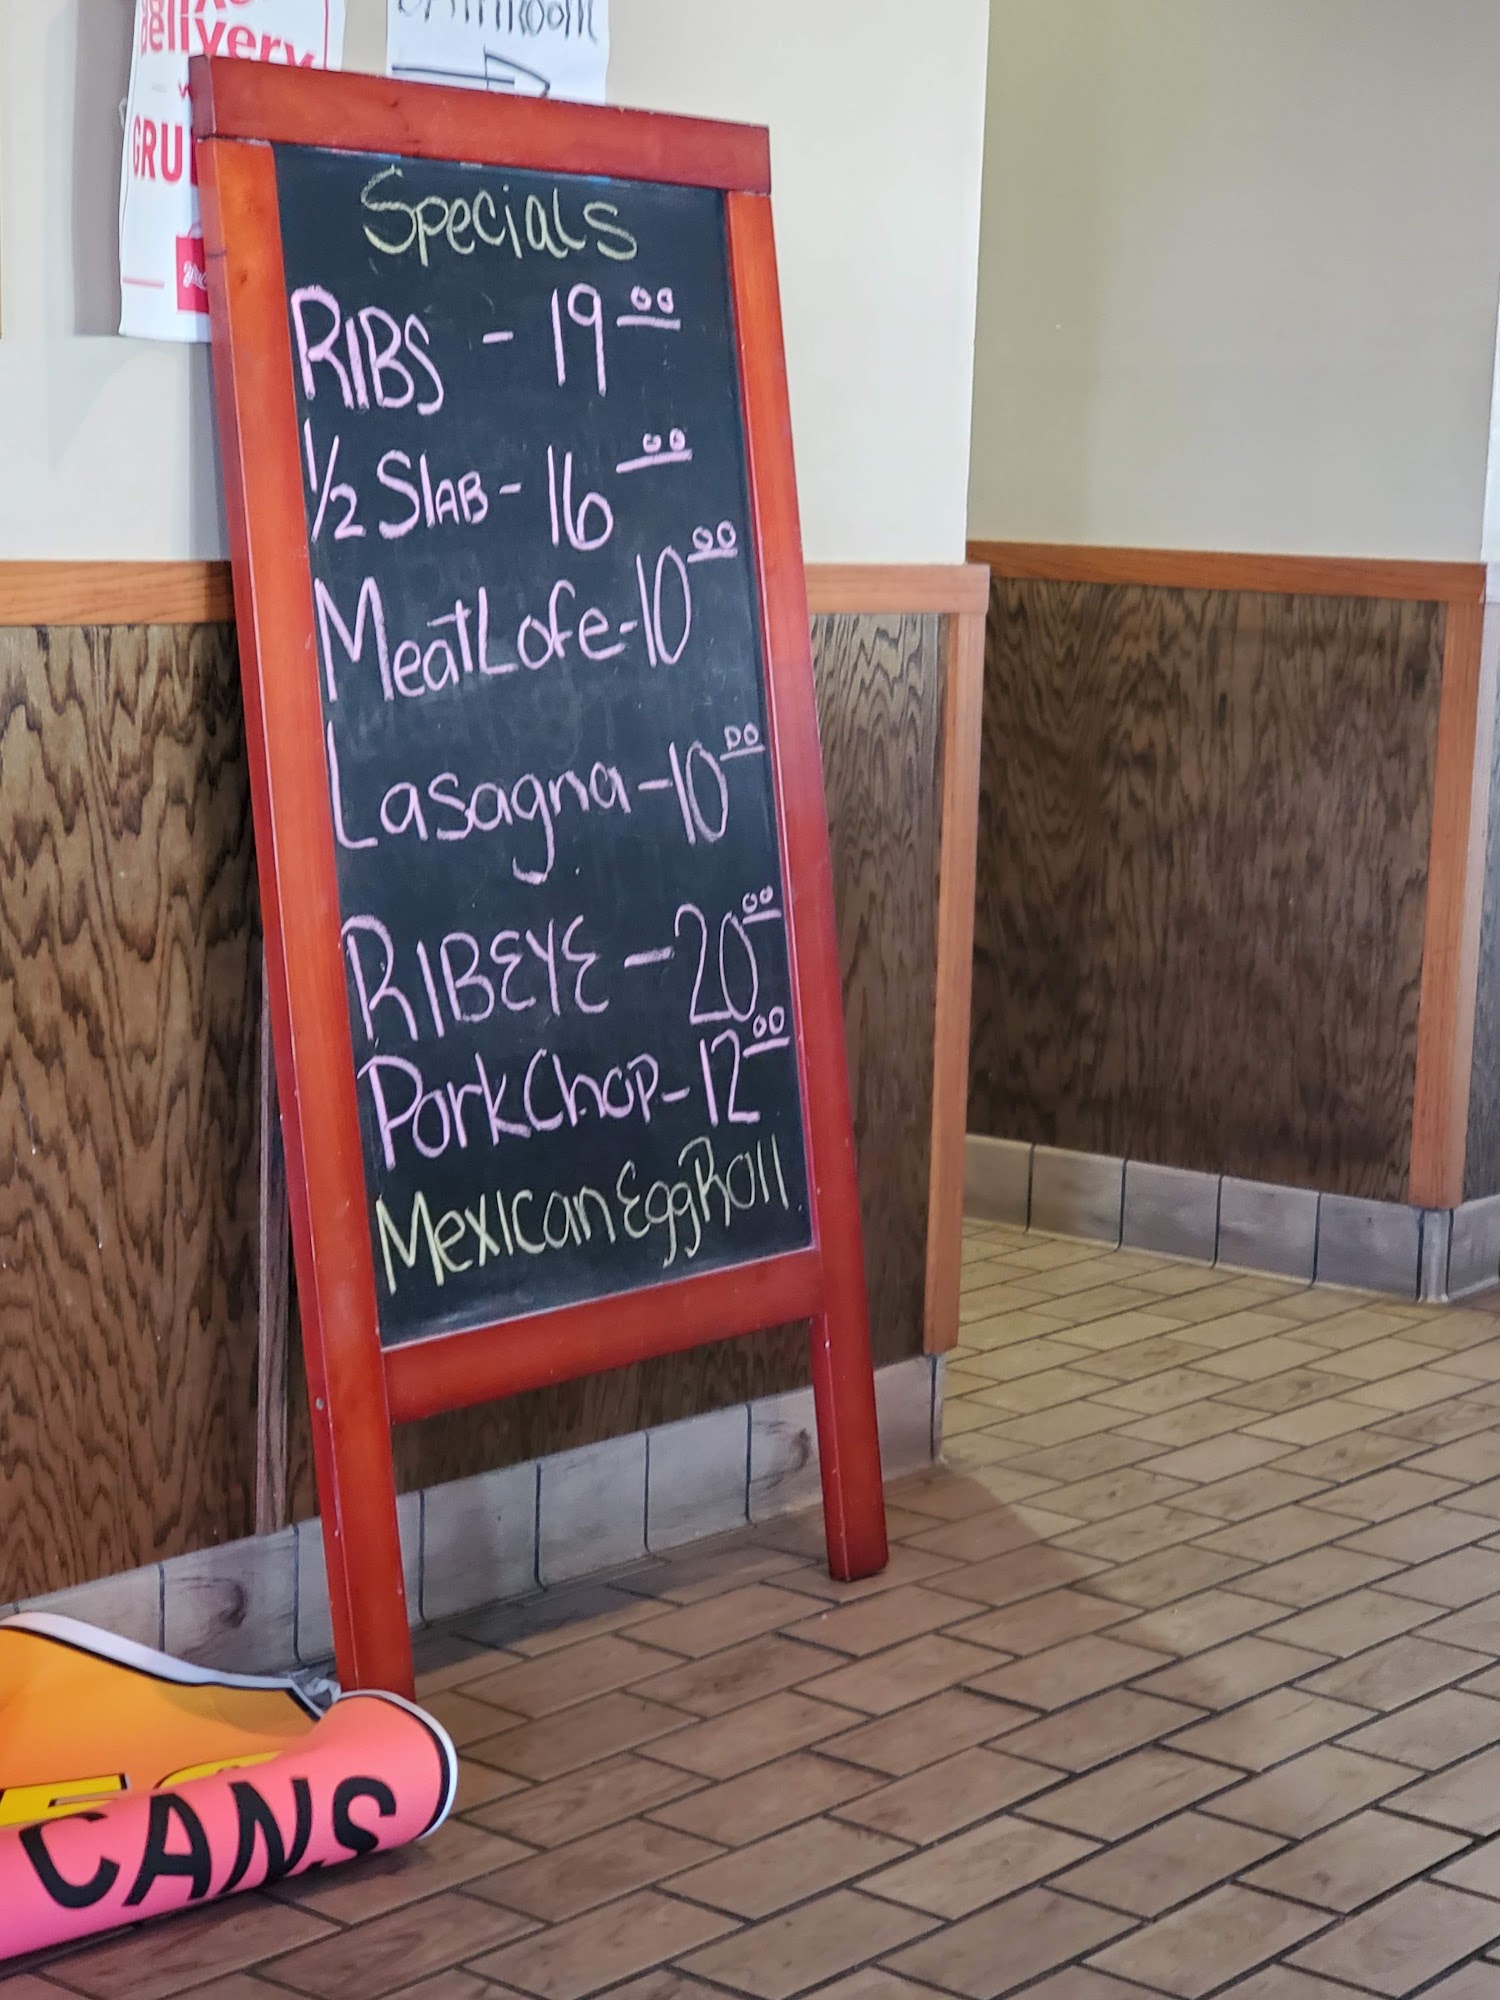 delivery
GRU
BATHROOM
Specials
RIBS - 19 00
1/2 SlAB - 16 00
MeatLofe - 10 00
Lasagna - 10 00
RIBEYE - 20 00
Pork Chop - 12 00
Mexican Egg Roll
CANS